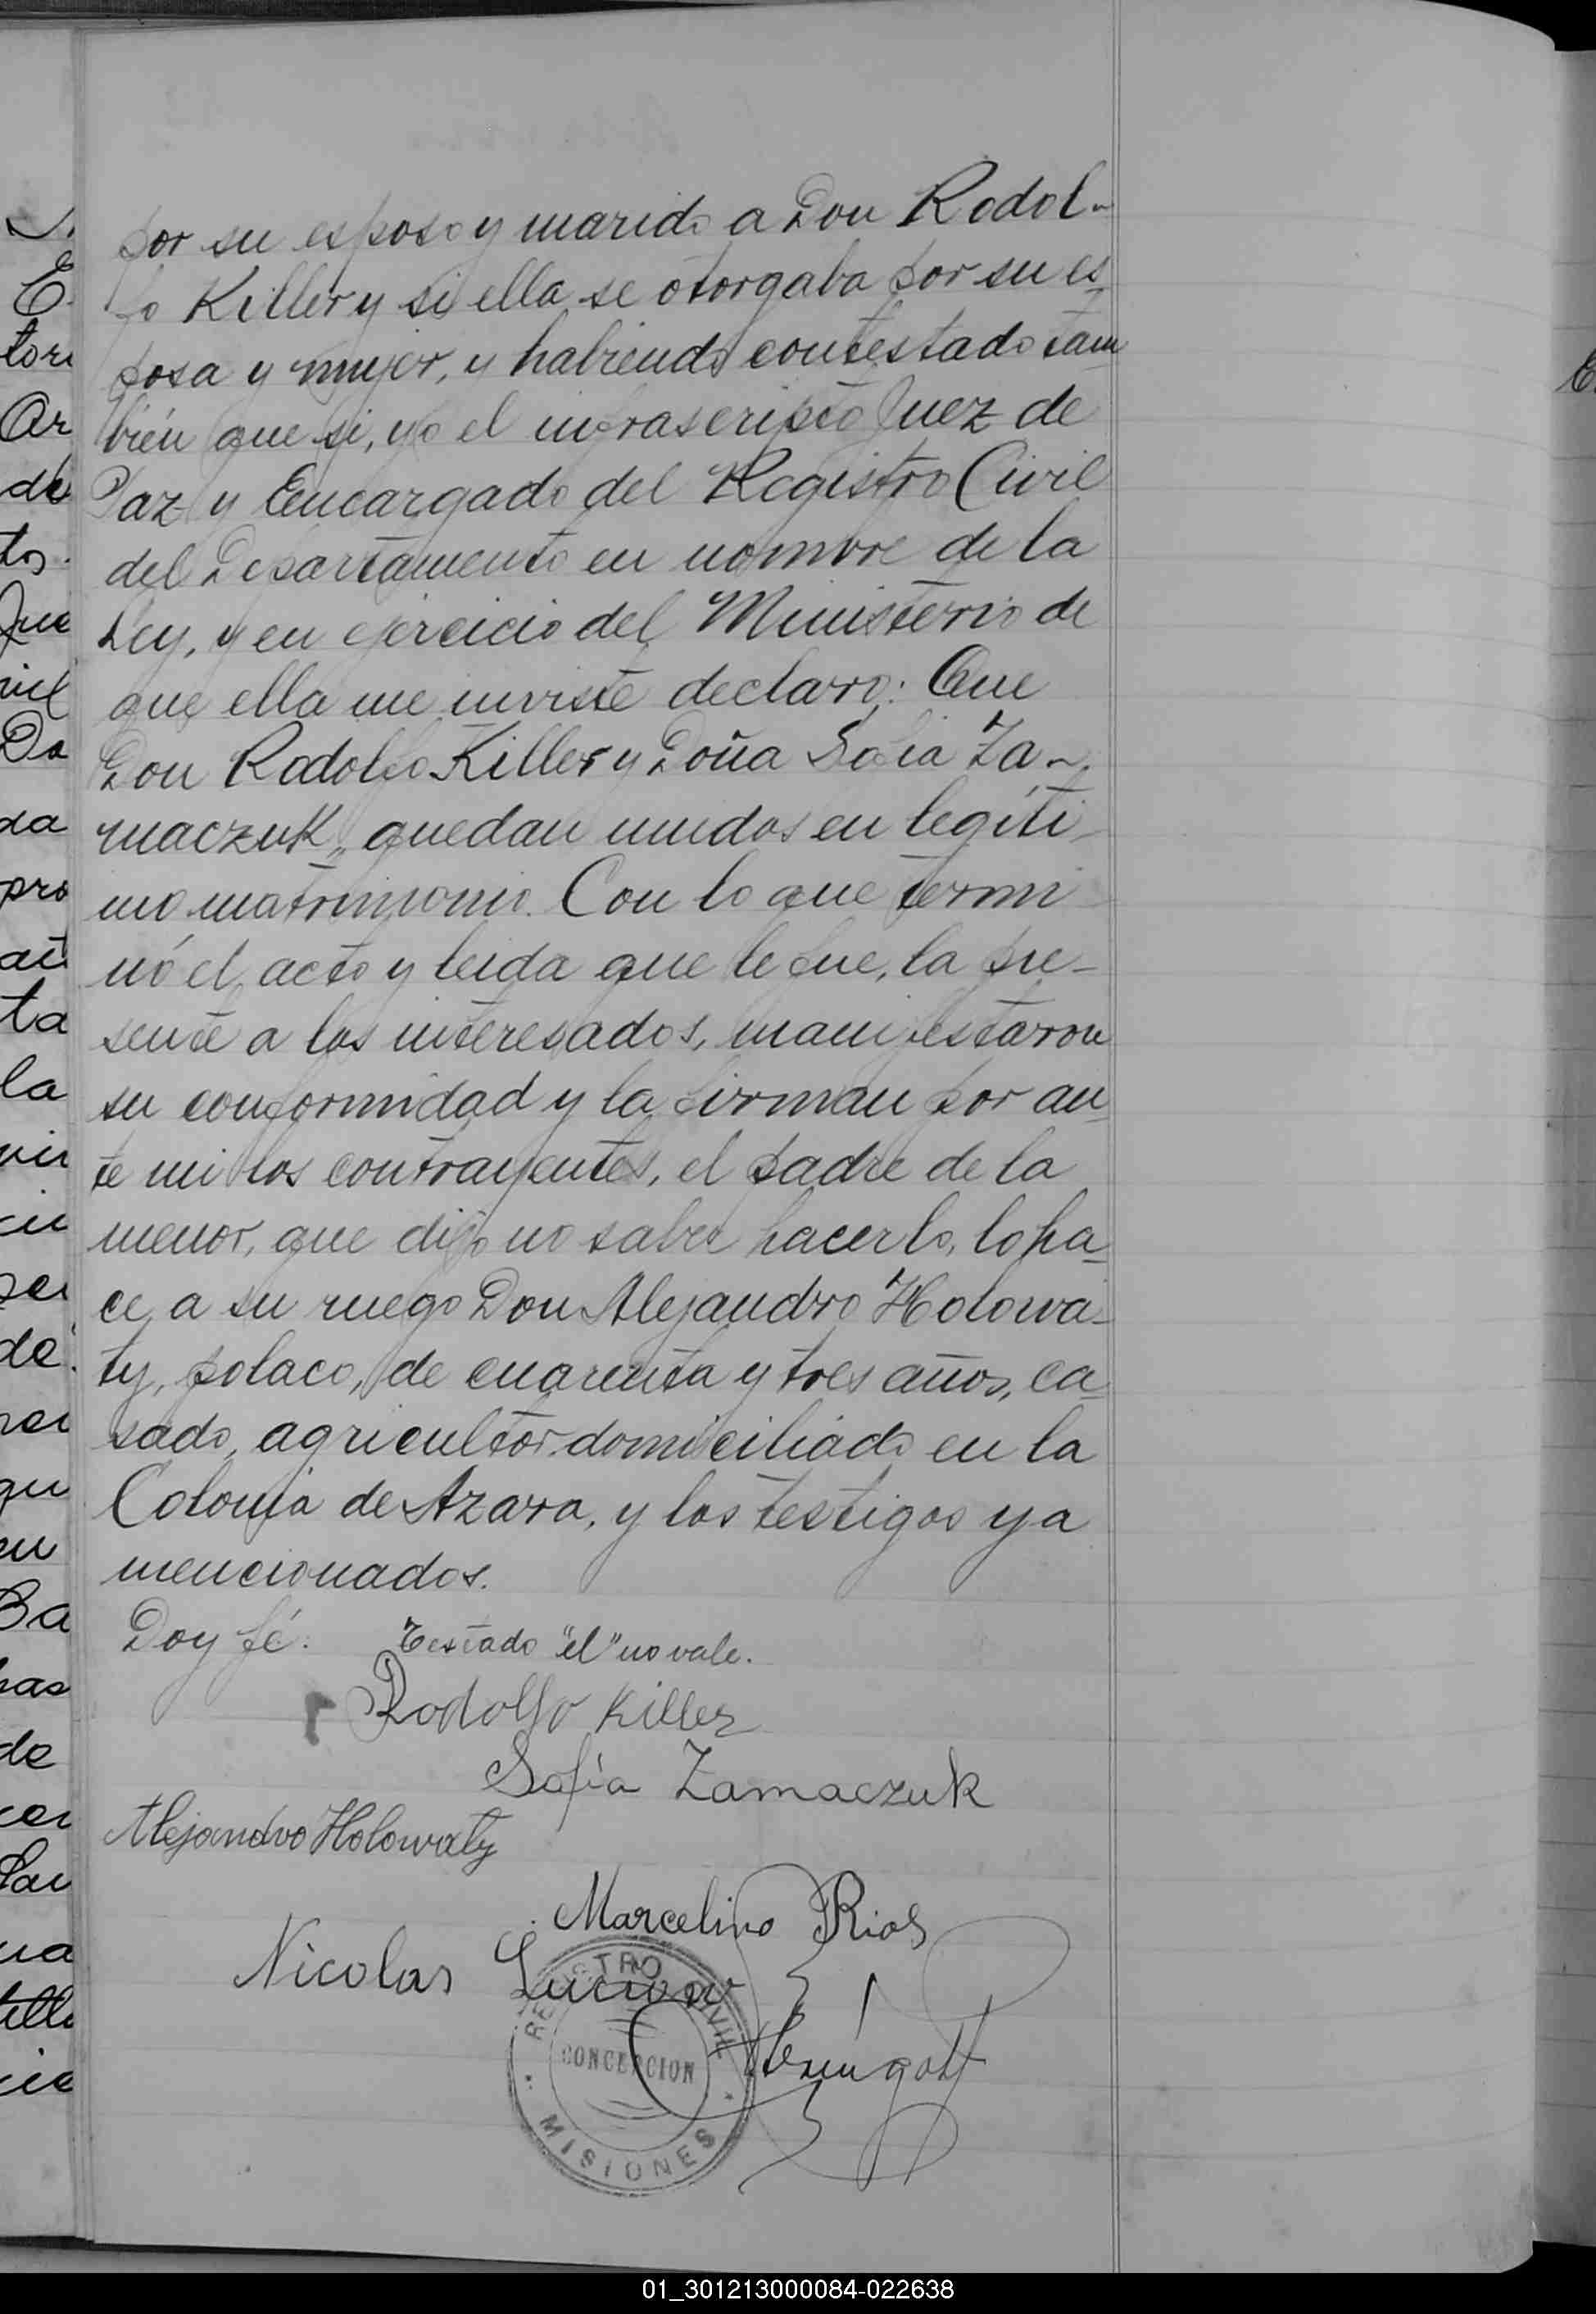 por su esposo y marido a Don Rodol-
fo Killer y si ella se otorgaba por su es
posa y mujer, y habiendo contestado tam
bién que si, yo el infrascripto Juez de
Paz y Encargado del Registro Civil
del Departamento en nombre de la
Ley, y en ejercicio del Ministerio de
que ella me inviste declaro: Que
Don Rodolfo Killer y Doña Sofia Za-
maczuk, quedan unidos en legiti
mo matrimonio. Con lo que termi
nó el acto y leida que le fue, la pre-
sente a los interesados, manifestaron
su conformidad y la firman por an
te mi los contrayentes, el padre de la
menor, que dijo no saber hacerlo, lo ha
ce a su ruego Don Alejandro Holowa-
ty, polaco, de cuarenta y tres años, ca
sado, agricultor, domiciliado en la
Colonia de Azara, y los testigos ya
mencionados.
Doy fé. Testado "el" no vale.
Rodolfo Killer
Sofia Zamaczuk
Alejandro Holowaty
Marcelino Rios
Nicolas
REGISTRO CIVIL
CONCEPCION
MISIONES
01_301213000084-022638